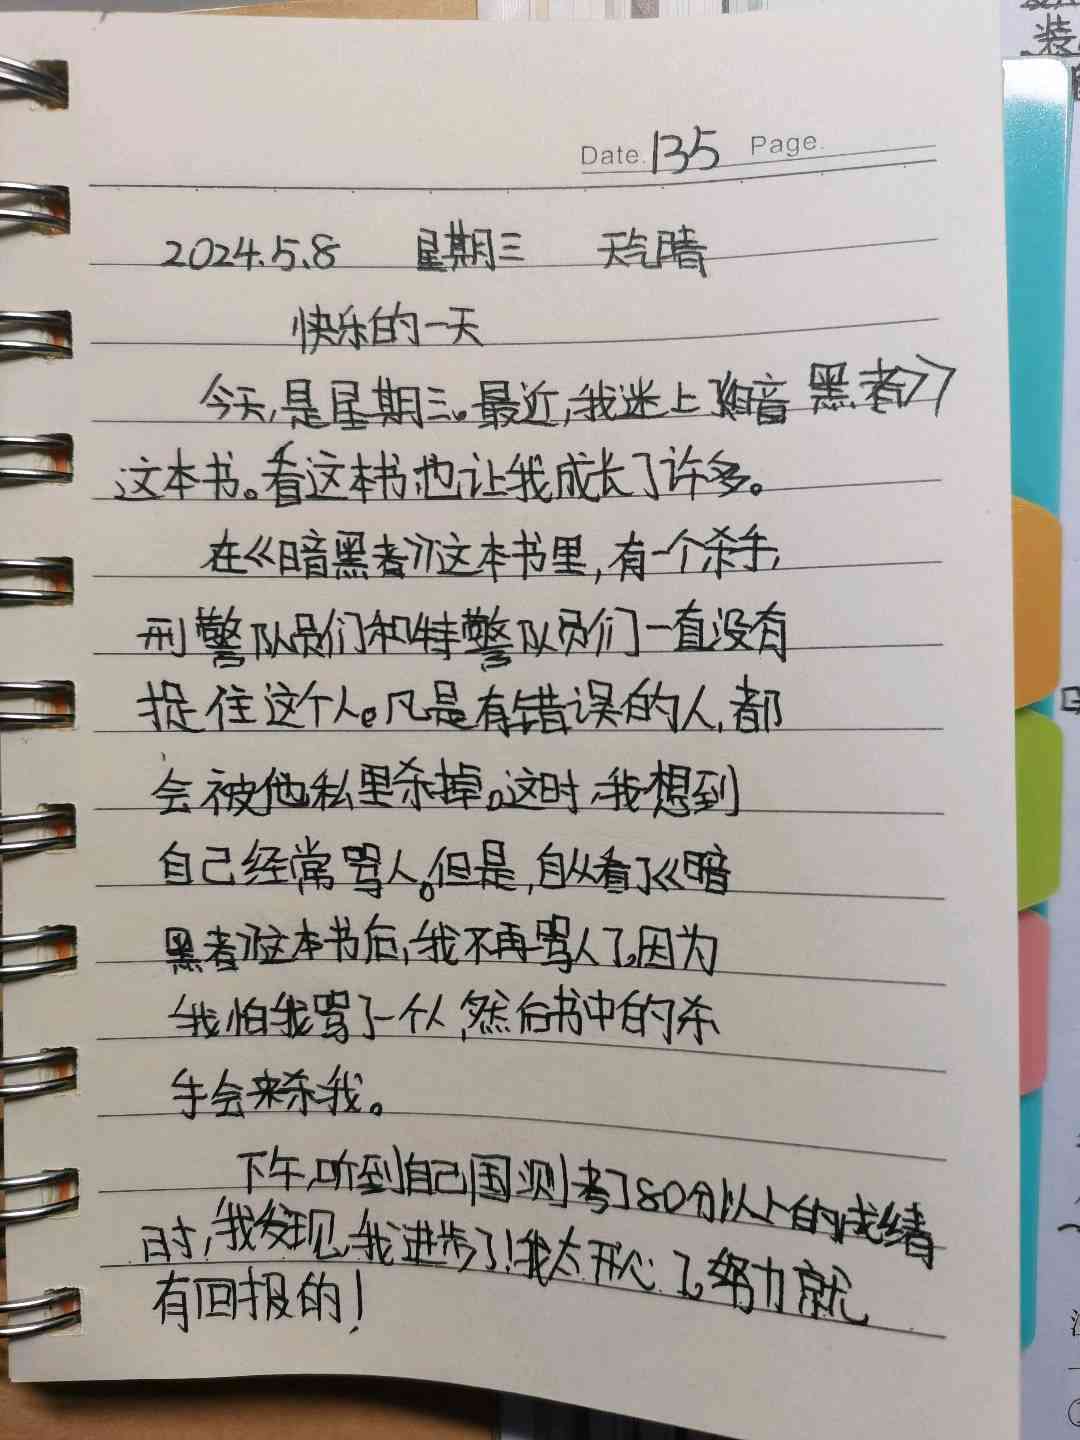 Date. 135 Page.
2024.5.8 星期三 天气晴
快乐的一天
今天,是星期三。最近,我迷上了《暗黑者》
这本书。看这本书,也让我成长了许多。
在《暗黑者》这本书里,有一个杀手,
刑警队员们和特警队员们一直没有
捉住这个人。凡是有错误的人,都
会被他私里杀掉。这时,我想到
自己经常骂人。但是,自从看了《暗
黑者》这本书后,我不再骂人了。因为
我怕我骂了一个人,然后书中的杀
手会来杀我。
下午,听到自己国测考了80分以上的成绩
时,我发现,我进步了!我太开心了。努力就
有回报的!